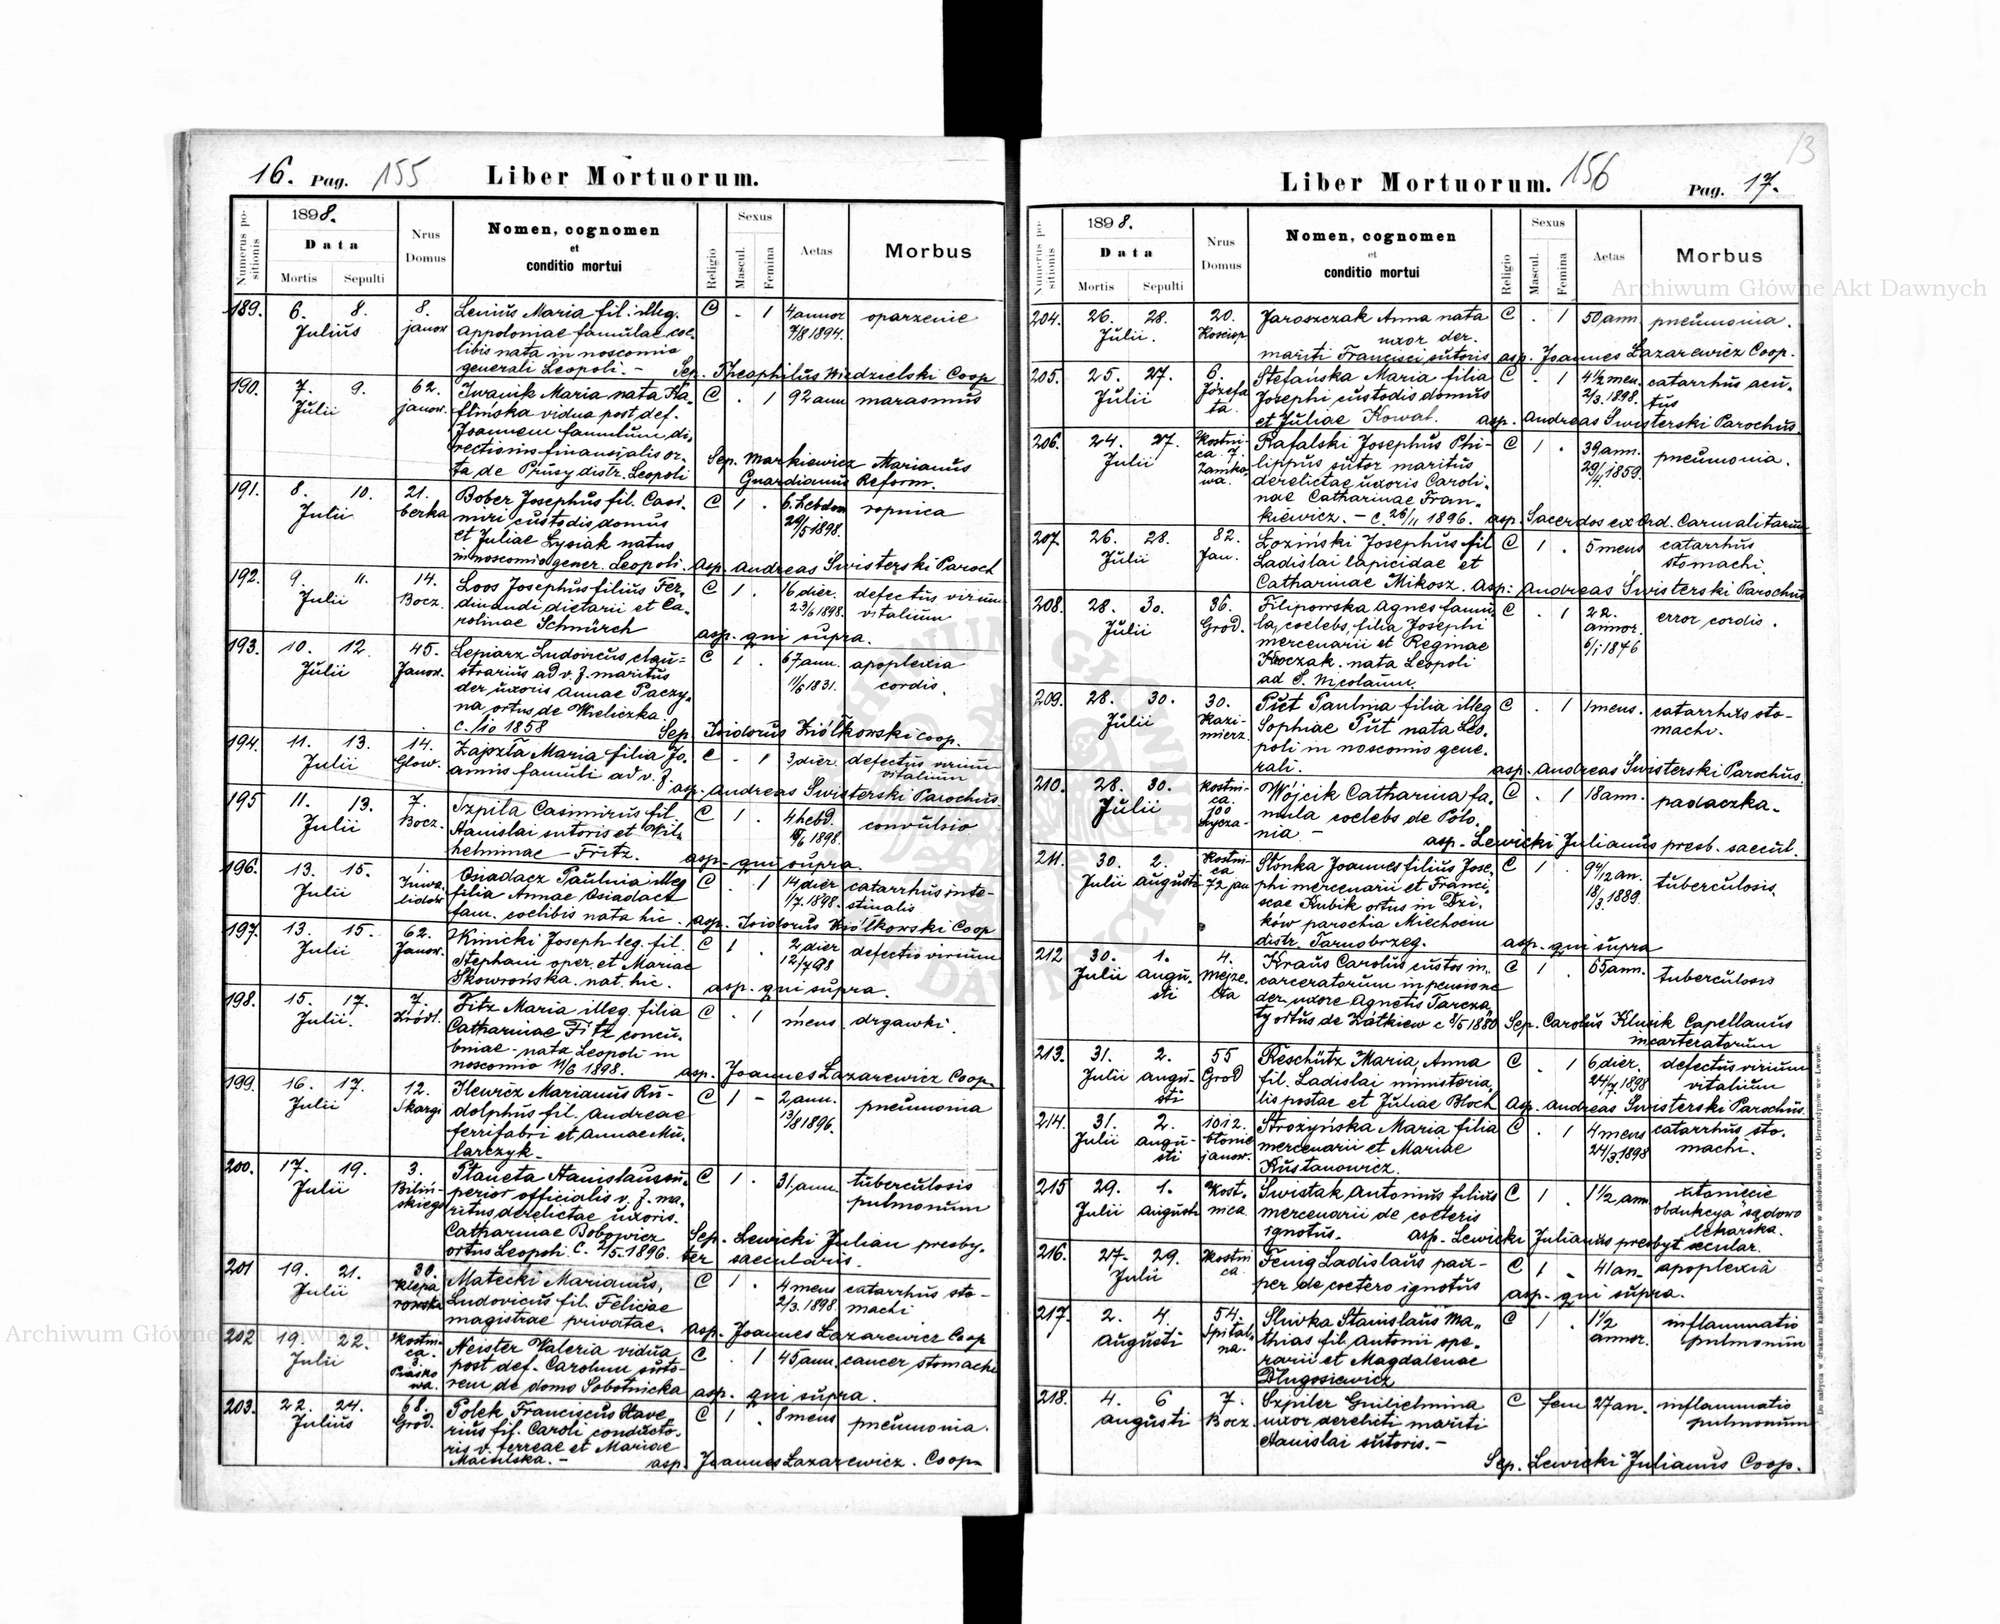 16. Pag. 155 Liber Mortuorum.
Numerus positionis
1898.
Data
Mortis Sepulti
Nrus Domus
Nomen, cognomen
et
conditio mortui
Religio
Sexus
Mascul. Femina
Aetas
Morbus
189. 6. 8. 8. Lenius Maria fil. illeg. C . 1 4 annor oparzenie
Julius janow Appoloniae famulae coe- 7/8 1894.
libis nata in noscomio
generali Leopoli. – Sep. Theophilus Niedzielski Coop
190. 7. 9. 62. Iwanik Maria nata Ka- C . 1 92 ann marasmus
Julii janow. vidua post def.
Joannem famulum di-
rectionis finansialis or- Sep. Markiewicz Marianus
ta de Prusy distr. Leopoli Guardianus Reform.
191. 8. 10. 21. Bober Josephus fil. Casi- C 1 . 6. hebdom ropnica
Julii berka miri custodis domus 29/5 1898.
et Juliae Lysiak natus
in noscomio gener. Leopoli. Asp. Andreas Swisterski Paroch
192. 9. 11. 14. Loos Josephus filius Fer- C 1 . 16 dier. defectus virium
Julii Bocz. dinandi dietarii et Ca- 23/6 1898. vitalium
rolinae Schmürch asp. qui supra.
193. 10. 12. 45. Lepiarz Ludovicus, clau- C 1 . 67 ann. apoplexia
Julii Janow. strarius ad v. f. maritus 11/6 1831. cordis.
der. uxoris Annae Paczy-
na ortus de Wieliczka
c. /10 1858 Sep. Isidorus Ziółkowski coop.
194. 11. 13. 14. Zajszla Maria filia Jo- C . 1 3 dier. defectus virium
Julii Glow. annis famuli ad v. f. vitalium
asp. Andreas Swisterski Parochus
195 11. 13. 7. Szpila Casimirus fil. C 1 . 4 hebd. convulsio
Julii Bocz. Stanislai sutoris et Wil- /6 1898.
helminae Fritz. asp. qui supra.
196. 13. 15. 1. Osiadacz Paulina illeg C . 1 14 dier catarrhus inte-
Julii Inwa- filia Annae Osiadacz 1/7. 1898. stinalis
lidów fam. coelibis nata hic. Asp. Isidorus Ziółkowski Coop
197. 13. 15. 62. Kinicki Joseph leg. fil. C 1 . 2 dier defectio virium
Julii Janow. Stephani oper. et Mariae 12/7 98
Skowrońska. nat. hic. asp. qui supra.
198. 15. 17. 7. Fitz Maria illeg. filia C . 1 mens drgawki.
Julii. Zródl. Catharinae Fitz concu-
binae - nata Leopoli in
noscomio 11/6 1898. asp. Joannes Lazarewicz Coop.
199. 16. 17. 12. Ilewicz Marianus Ru- C 1 – 2 ann. pneumonia
Julii Skargi dolphus fil. Andreae 13/8 1896.
ferrifabri et Annae Mu-
larczyk.
200. 17. 19. 3. Planeta Stanislaus su- C 1 . 31 ann. tuberculosis
Julii Biliń- perior officialis v. f. ma- pulmonum
skiego ritus derelictae uxoris.
Catharinae Bobowicz Sep. Lewicki Julian presby-
ortus Leopoli. C. 2/5. 1896. ter saecularis.
201 19. 21. 30. Matecki Marianus, C 1 . 4 mens catarrhus sto-
Julii Klepa Ludovicus fil. Feliciae 2/3. 1898. machi
rowska magistrae privatae. asp. Joannes Lazarewicz Coop
202 19. 22. Kostni- Neister Valeria vidua C . 1 45 ann. cancer stomachi
Julii ca. post def. Carolum suto-
Piasko rem de domo Sobotnicka asp. qui supra.
wa.
203. 22. 24. 68. Polek Franciscus Xave- C 1 . 8 mens pneumonia.
Julius Grod. rius fil. Caroli conducto-
ris v. ferreae et Mariae
Maculska. – asp. Joannes Lazarewicz. Coop.
13
Liber Mortuorum. 156 Pag. 17.
Numerus positionis
1898.
Data
Mortis Sepulti
Nrus Domus
Nomen, cognomen
et
conditio mortui
Religio
Sexus
Mascul. Femina
Aetas
Morbus
204. 26. 28. 20. Jaroszczak Anna nata C . 1 50 ann. pneumonia.
Julii. Kosciop uxor der.
mariti Francisci sutoris asp. Joannes Lazarewicz Coop.
205. 25. 27. 6. Stefańska Maria filia C . 1 4½ men. catarrhus acu-
Julii Józefa Josephi custodis domus 2/3. 1898. tus
ta. et Juliae Kowal. asp. Andreas Swisterski Parochus.
206. 24. 27. Kostni- Rafalski Josephus Phi- C 1 . 39 ann. pneumonia.
Julii ca 7. lippus sutor maritus 29/4. 1859.
Zamko- derelictae uxoris Caroli-
wa. nae Catharinae Fran-
kiewicz. – C. 26/11 1896. asp. Sacerdos ex Ord. Carmalitarum
207. 26. 28. 82. Łoziński Josephus fil C 1 . 5 mens catarrhus
Julii Jan. Ladislai lapicidae et stomachi.
Catharinae Mikosz. Asp: Andreas Swisterski Parochus
208. 28. 30. 36. Filipowska Agnes famu- C . 1 22. error cordis.
Julii Grod. la, coelebs, filia Josephi annor.
mercenarii et Reginae 6/1 1876
Kroczak. nata Leopoli
ad S. Nicolaum.
209. 28. 30. 30. Put Paulina filia illeg C . 1 1 mens. catarrhus sto-
Julii Kazi- Sophiae Put nata Leo- machi.
mierz. poli in noscomio gene-
rali. asp. Andreas Swisterski Parochus.
210. 28. 30. Kostni- Wójcik Catharina fa- C . 1 18 ann. padaczka.
Julii ca. mula coelebs de Polo-
100 nia –
Łycza- asp. Lewicki Julianus presb. saecul.
211. 30. 2. Kostni- Słonka Joannes filius Jose- C 1 . 9 4/12 an. tuberculosis.
Julii augusti ca phi mercenarii et Franci- 18/3. 1889.
72 jan scae Kubik ortus in Dzi-
ków parochia Miechocin
distr. Tarnobrzeg. asp. qui supra
212 30. 1. 4. Kraus Carolus custos in- C 1 . 65 ann. tuberculosis
Julii augu- Mejze- carceratorum in pensione
sti cta der. uxore Agnetis Tarcza
ty ortus de Zółkiew c 8/5 1880 Sep. Carolus Klusik Capellanus
incarteratorum
213. 31. 2. 55 Reschütz Maria, Anna C . 1 6 dier. defectus virium
Julii augu- Grod fil. Ladislai ministeria- 24/7 1898 vitalium
sti lis postae et Juliae Bloch Asp. Andreas Swisterski Parochus.
214. 31. 2. 1012. Strożyńska Maria filia C . 1 4 mens catarrhus sto-
Julii augu- błonie mercenarii et Mariae 24/3. 1898 machi.
sti janow. Kustanowicz.
215 29. 1. Kost- Swistak Antonius filius C 1 . 1½ ann utonięcie
Julii augusti nica mercenarii de coeteris obdukcya sądowo
ignotus. asp. Lewicki Julianus presbyt. secular. lekarska.
216. 27. 29. Kostni Fenig Ladislaus pau- C 1 . 41 an. apoplexia
Julii ca. per de coetero ignotus asp. qui supra.
217. 2. 4. 54. Sliwka Stanislaus Ma- C 1 . 1½ inflammatio
augusti Spital- thias fil. Antonii ope- annor. pulmonum
na. rarii et Magdalenae
Długosiewicz
218. 4. 6 7. Szpiler Guilielmina C fem 27 an. inflammatio
augusti Bocz. uxor derelicti mariti pulmonum
Stanislai sutoris. –
Sep. Lewicki Julianus Coop.
Do nabycia w drukarni katolickiej J. Chęcińskiego w zabudowaniu OO. Bernardynów we Lwowie.
Archiwum Główne Akt Dawnych
Archiwum Główne Akt Dawnych
ARCHIWUM GŁÓWNE AKT DAWNYCH